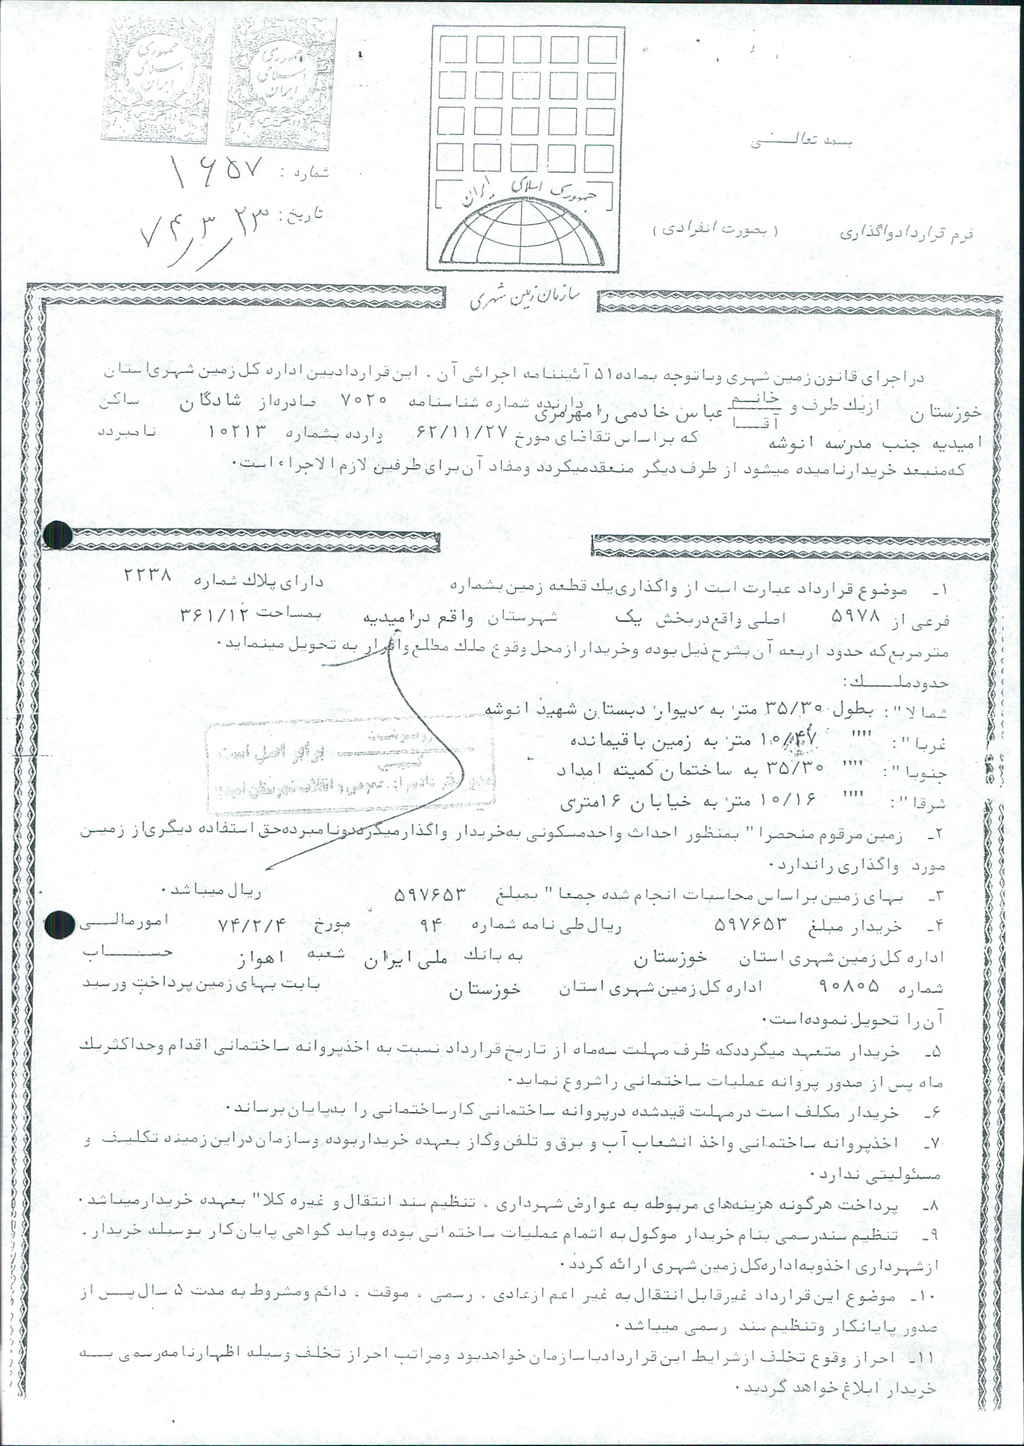 جمهوری اسلامی ایران
جمهوری اسلامی ایران
بسمه تعالــــی
شماره : ۱۶۵۷
تاریخ : ۷۴/۳/۲۳
جمهوری اسلامی ایران
فرم قراردادواگذاری ( بصورت انفرادی )
سازمان زمین شهری
دراجرای قانون زمین شهری وباتوجه بماده۵۱ آئیننامه اجرائی آن . این‌قراردادبین اداره کل زمین شهری‌استان
خوزستان ازیك طرف و خانــم آقــا عباس خادمی رامهرمزی دارنده شماره شناسنامه ۷۰۲۰ صادره‌از شادگان ساکن
امیدیه جنب مدرسه انوشه که براساس تقاضای مورخ ۶۲/۱۱/۲۷ وارده بشماره ۱۰۲۱۳ نامبرده
که‌منبعد خریدارنامیده میشود از طرف دیگر منعقدمیگردد ومفاد آن‌برای طرفین لازم‌الاجراء است.
۱ـ موضوع قرارداد عبارت است از واگذاری‌یك قطعه زمین‌بشماره دارای پلاك شماره ۲۲۳۸
فرعی از ۵۹۷۸ اصلی واقع‌دربخش یک شهرستان واقع درامیدیه بمساحت ۳۶۱/۱۲
مترمربع‌که حدود اربعه آن‌بشرح‌ذیل بوده وخریدارازمحل وقوع ملك مطلع واقرار به تحویل مینماید.
حدودملــــك:
شمالا": بطول ۳۵/۳۰ متر به دیوار دبستان شهید انوشه
غربا": """ ۱۰/۴۷ متر به زمین باقیمانده
جنوبا": """ ۳۵/۳۰ به ساختمان کمیته امداد
شرقا": """ ۱۰/۱۶ متر به خیابان ۱۶متری
برابر اصل است
۲ـ زمین مرقوم منحصرا" بمنظور احداث واحدمسکونی به‌خریدار واگذارمیگرددونامبرده‌حق استفاده دیگری‌از زمین
مورد واگذاری راندارد.
۳ـ بهای زمین براساس محاسبات انجام شده جمعا" بمبلغ ۵۹۷۶۵۳ ریال میباشد.
۴ـ خریدار مبلغ ۵۹۷۶۵۳ ریال‌طی نامه شماره ۹۴ مورخ ۷۴/۲/۴ امورمالــی
اداره کل زمین شهری استان خوزستان به بانك ملی ایران شعبه اهواز حســـاب
شماره ۹۰۸۰۵ اداره کل زمین‌شهری استان خوزستان بابت بهای زمین‌پرداخت ورسید
آن‌را تحویل نموده‌است.
۵ـ خریدار متعهد میگرددکه ظرف مهلت سه‌ماه از تاریخ قرارداد نسبت به اخذپروانه ساختمانی اقدام وحداکثریك
ماه پس از صدور پروانه عملیات ساختمانی راشروع نماید.
۶ـ خریدار مکلف است درمهلت قیدشده درپروانه ساختمانی کارساختمانی را به‌پایان برساند.
۷ـ اخذپروانه ساختمانی واخذ انشعاب آب و برق و تلفن وگاز بعهده خریداربوده وسازمان دراین‌زمینه تکلیـف و
مسئولیتی ندارد.
۸ـ پرداخت هرگونه هزینه‌های مربوطه به عوارض شهرداری ، تنظیم سند انتقال و غیره کلا" بعهده خریدارمیباشد.
۹ـ تنظیم سندرسمی بنام خریدار موکول به اتمام عملیات ساختمانی بوده وباید گواهی پایان‌کار بوسیله خریدار .
ازشهرداری اخذوبه‌اداره‌کل زمین شهری ارائه گردد.
۱۰ـ موضوع این‌قرارداد غیرقابل انتقال به غیر اعم ازعادی ، رسمی ، موقت ، دائم ومشروط به مدت ۵ سال پس از
صدور پایانکار وتنظیم سند رسمی میباشد.
۱۱ـ احراز وقوع تخلف ازشرایط این قراردادباسازمان خواهدبود ومراتب احراز تخلف وسیله اظهارنامه‌رسمی بــه
خریدار ابلاغ خواهد گردید.